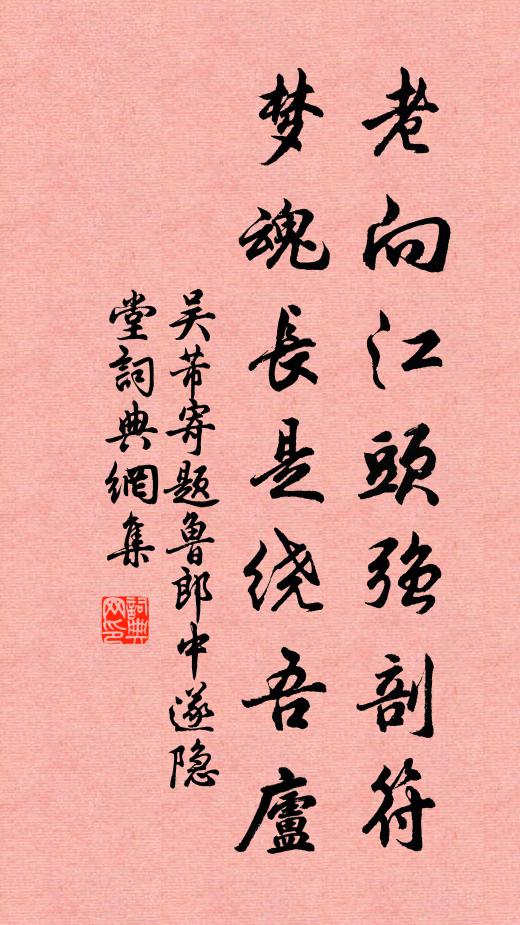 老向江頭強剖符
梦魂長是绕吾廬
吴芾寄题魯郎中遂隐
堂詞典網集
詞典网印